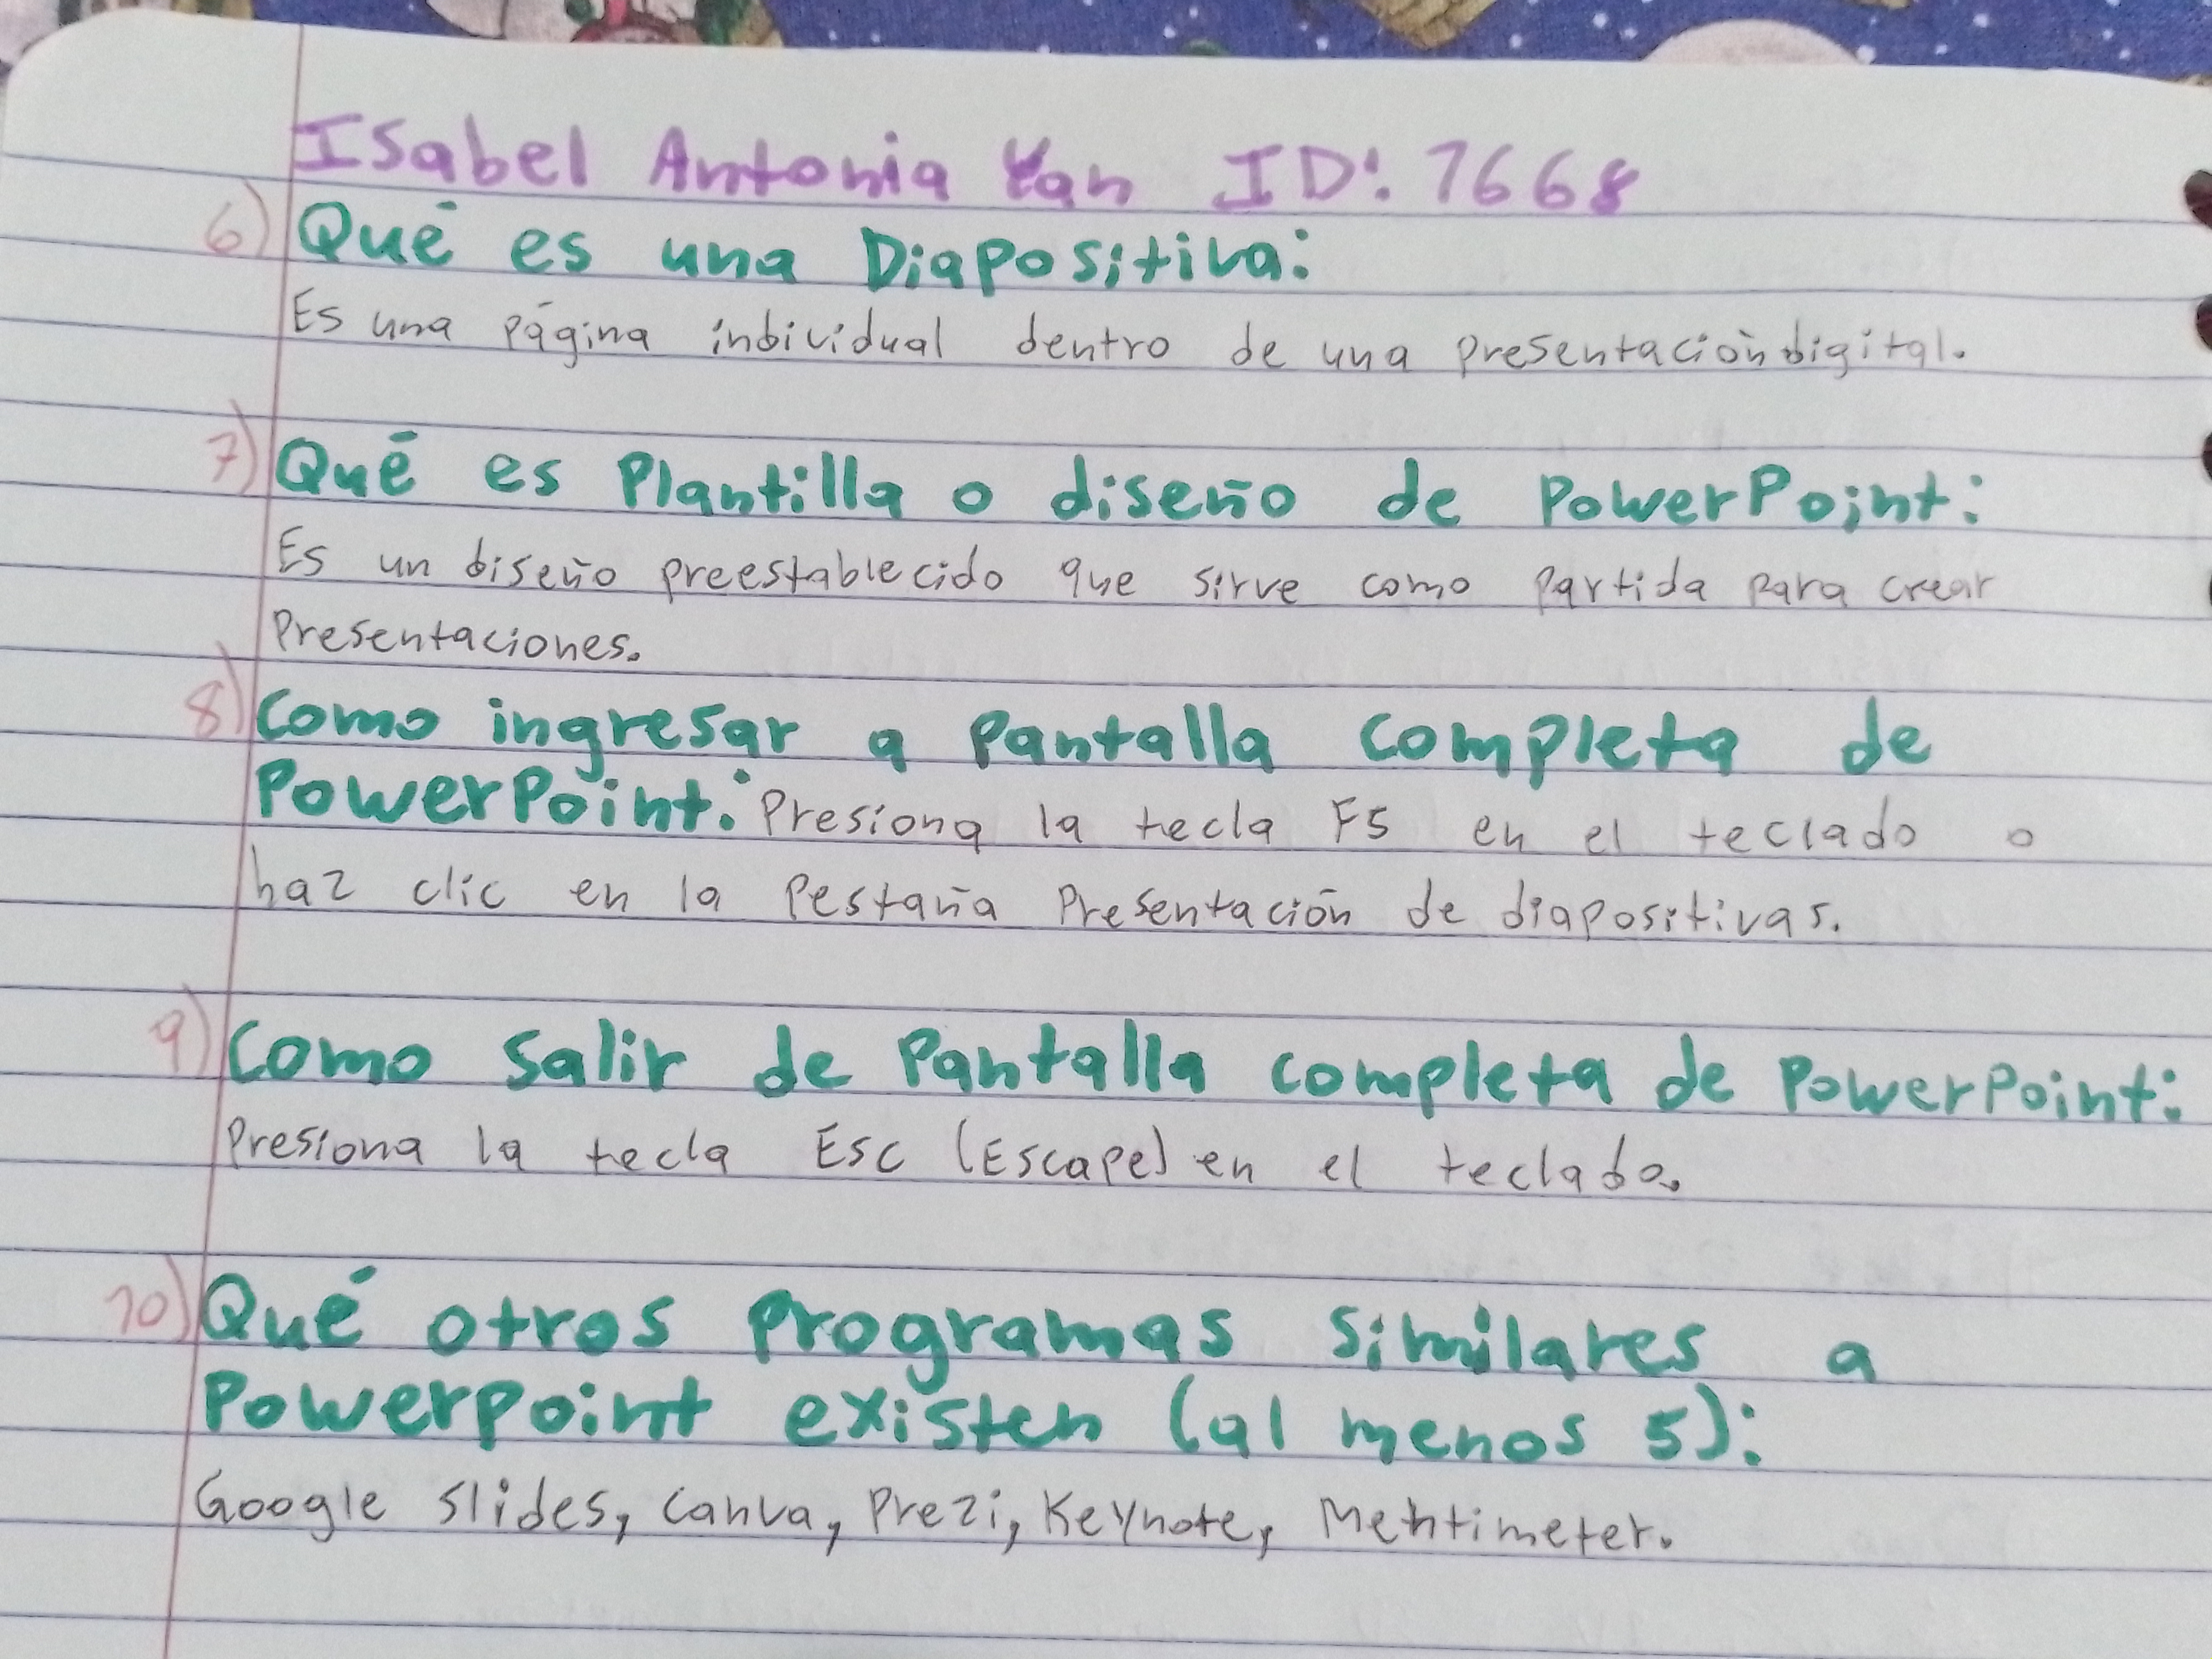 Isabel Antonia Yan ID: 7668
6) Qué es una Diapositiva:
Es una página individual dentro de una presentación digital.
7) Qué es Plantilla o diseño de PowerPoint:
Es un diseño preestablecido que sirve como partida para crear
Presentaciones.
8) Como ingresar a Pantalla completa de
PowerPoint: Presiona la tecla F5 en el teclado o
haz clic en la Pestaña Presentación de diapositivas.
9) Como Salir de Pantalla completa de PowerPoint:
Presiona la tecla Esc (Escape) en el teclado.
10) Qué otros programas similares a
Powerpoint existen (al menos 5):
Google Slides, Canva, Prezi, Keynote, Mentimeter.